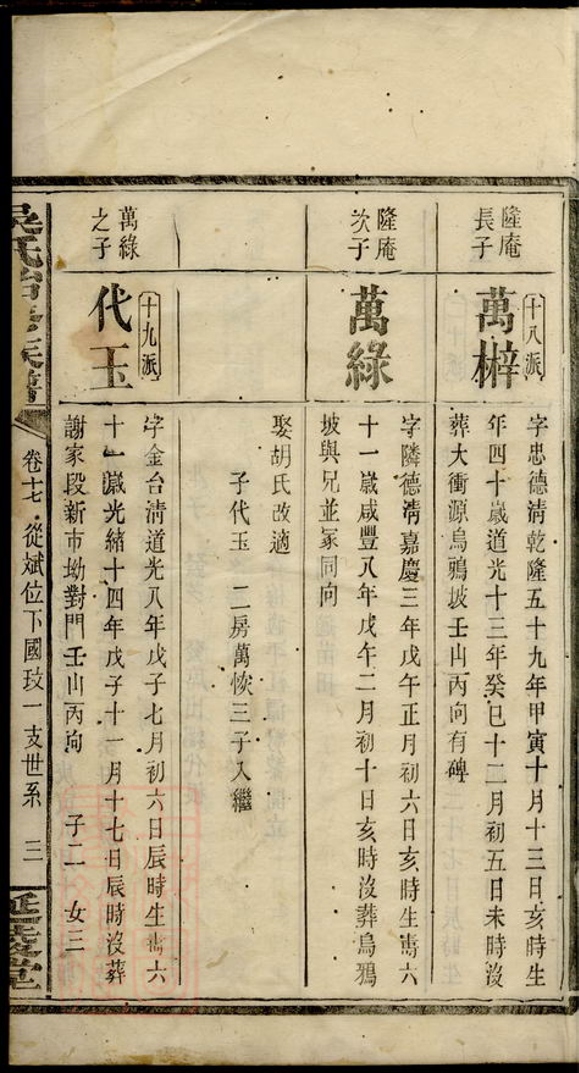 隆庵
長子
十八派
萬櫸
字忠德清乾隆五十九年甲寅十月十三日亥時生
年四十歲道光十三年癸巳十二月初五日未時沒
葬大衝源烏鴉坡壬山丙向有碑
隆庵
次子
萬綠
字隣德清嘉慶三年戊午正月初六日亥時生壽六
十一歲咸豐八年戊午二月初十日亥時沒葬烏鴉
坡與兄並冢同向
娶胡氏改適
子代玉 二房萬恢三子入繼
萬綠
之子
十九派
代玉
字金台清道光八年戊子七月初六日辰時生壽六
十一歲光緒十四年戊子十一月十七日辰時沒葬
謝家段新市坳對門壬山丙向 子二 女三
吳氏 族譜
卷十七 從斌位下國玟一支世系 三
延陵堂